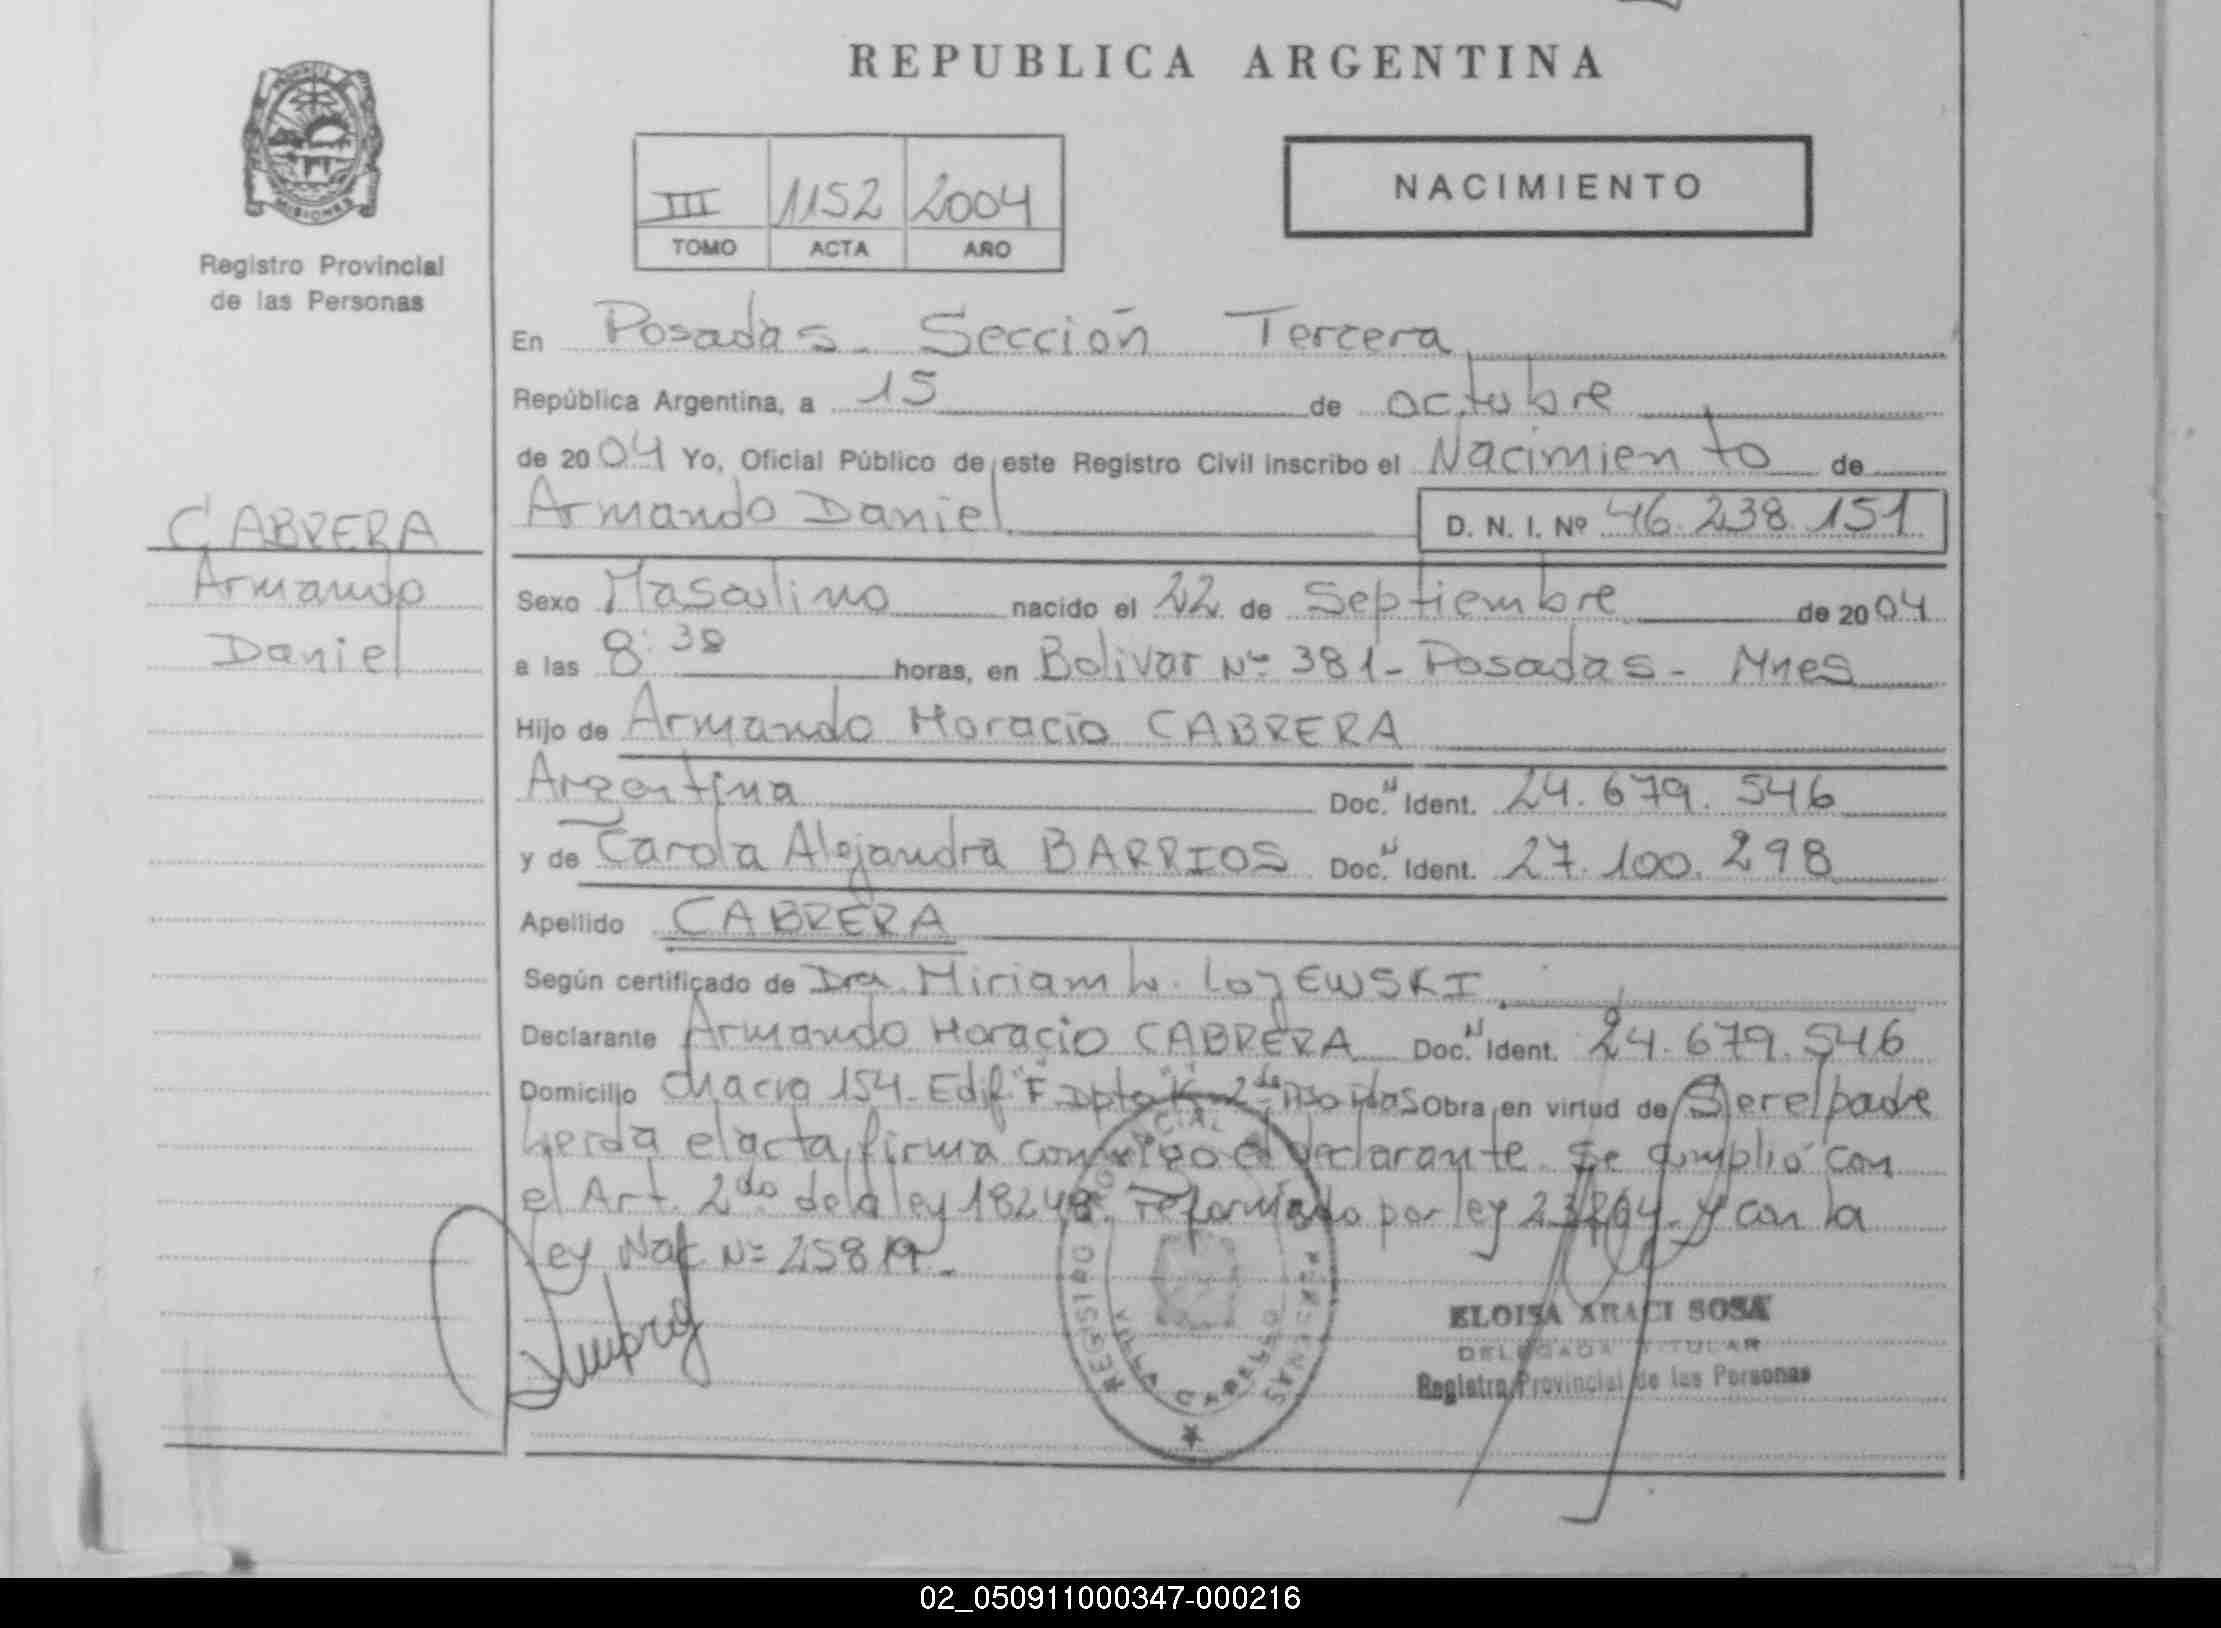 REPUBLICA ARGENTINA
MISIONES
Registro Provincial
de las Personas
III 1152 2004
TOMO ACTA AÑO
NACIMIENTO
En Posadas - Sección Tercera
República Argentina, a 15 de octubre
de 2004 Yo, Oficial Público de este Registro Civil inscribo el Nacimiento de
Armando Daniel D. N. I. Nº 46.238.151
CABRERA
Armando
Daniel
Sexo Masculino nacido el 22 de Septiembre de 2004
a las 8:38 horas, en Bolivar Nº 381 - Posadas - Mnes
Hijo de Armando Horacio CABRERA
Argentina Doc. N Ident. 24.679.546
y de Carola Alejandra BARRIOS Doc. N Ident. 27.100.298
Apellido CABRERA
Según certificado de Dra. Miriam L. LOJEWSKI
Declarante Armando Horacio CABRERA Doc. N Ident. 24.679.546
Domicilio Chacra 154 - Edif. "F" Dpto "K" 2do Obra en virtud de Ser el padre
Leida el acta, firma conmigo el declarante. Se cumplió con
el Art. 2do de la ley 18248. reformado por ley 23264. y con la
ley Nac Nº 25819.-
REGISTRO PROVINCIAL DE LAS PERSONAS
VILLA CABELLO
ELOISA ARACI SOSA
DELEGADA TITULAR
Registro Provincial de las Personas
02_050911000347-000216